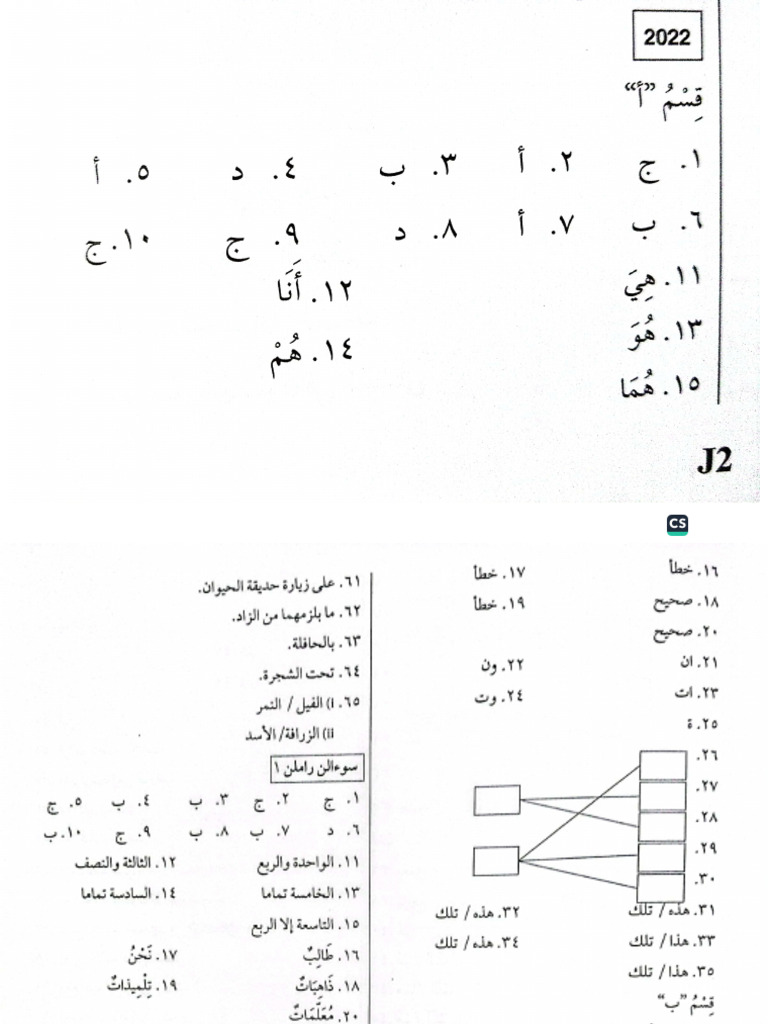 2022
قِسْمُ "أ"
١. ج ٢. أ ٣. ب ٤. د ٥. أ
٦. ب ٧. أ ٨. د ٩. ج ١٠. ج
١١. هِيَ ١٢. أَنَا
١٣. هُوَ ١٤. هُمْ
١٥. هُمَا
J2
CS
١٦. خطأ ١٧. خطأ
١٨. صحيح ١٩. خطأ
٢٠. صحيح
٢١. ان ٢٢. ون
٢٣. ات ٢٤. وت
٢٥. ة
٢٦.
٢٧.
٢٨.
٢٩.
٣٠.
٣١. هذه/ تلك ٣٢. هذه/ تلك
٣٣. هذا/ تلك ٣٤. هذه/ تلك
٣٥. هذا/ تلك
قِسْمُ "ب"
٦١. على زيارة حديقة الحيوان.
٦٢. ما يلزمهما من الزاد.
٦٣. بالحافلة.
٦٤. تحت الشجرة.
٦٥. i) الفيل/ النمر
ii) الزرافة/ الأسد
سوءالن راملن ١
١. ج ٢. ج ٣. ب ٤. ب ٥. ج
٦. د ٧. ب ٨. ب ٩. ج ١٠. ب
١١. الواحدة والربع ١٢. الثالثة والنصف
١٣. الخامسة تماما ١٤. السادسة تماما
١٥. التاسعة إلا الربع
١٦. طَالِبٌ ١٧. نَحْنُ
١٨. ذَاهِبَاتٌ ١٩. تِلْمِيذَاتٌ
٢٠. مُعَلِّمَاتٌ